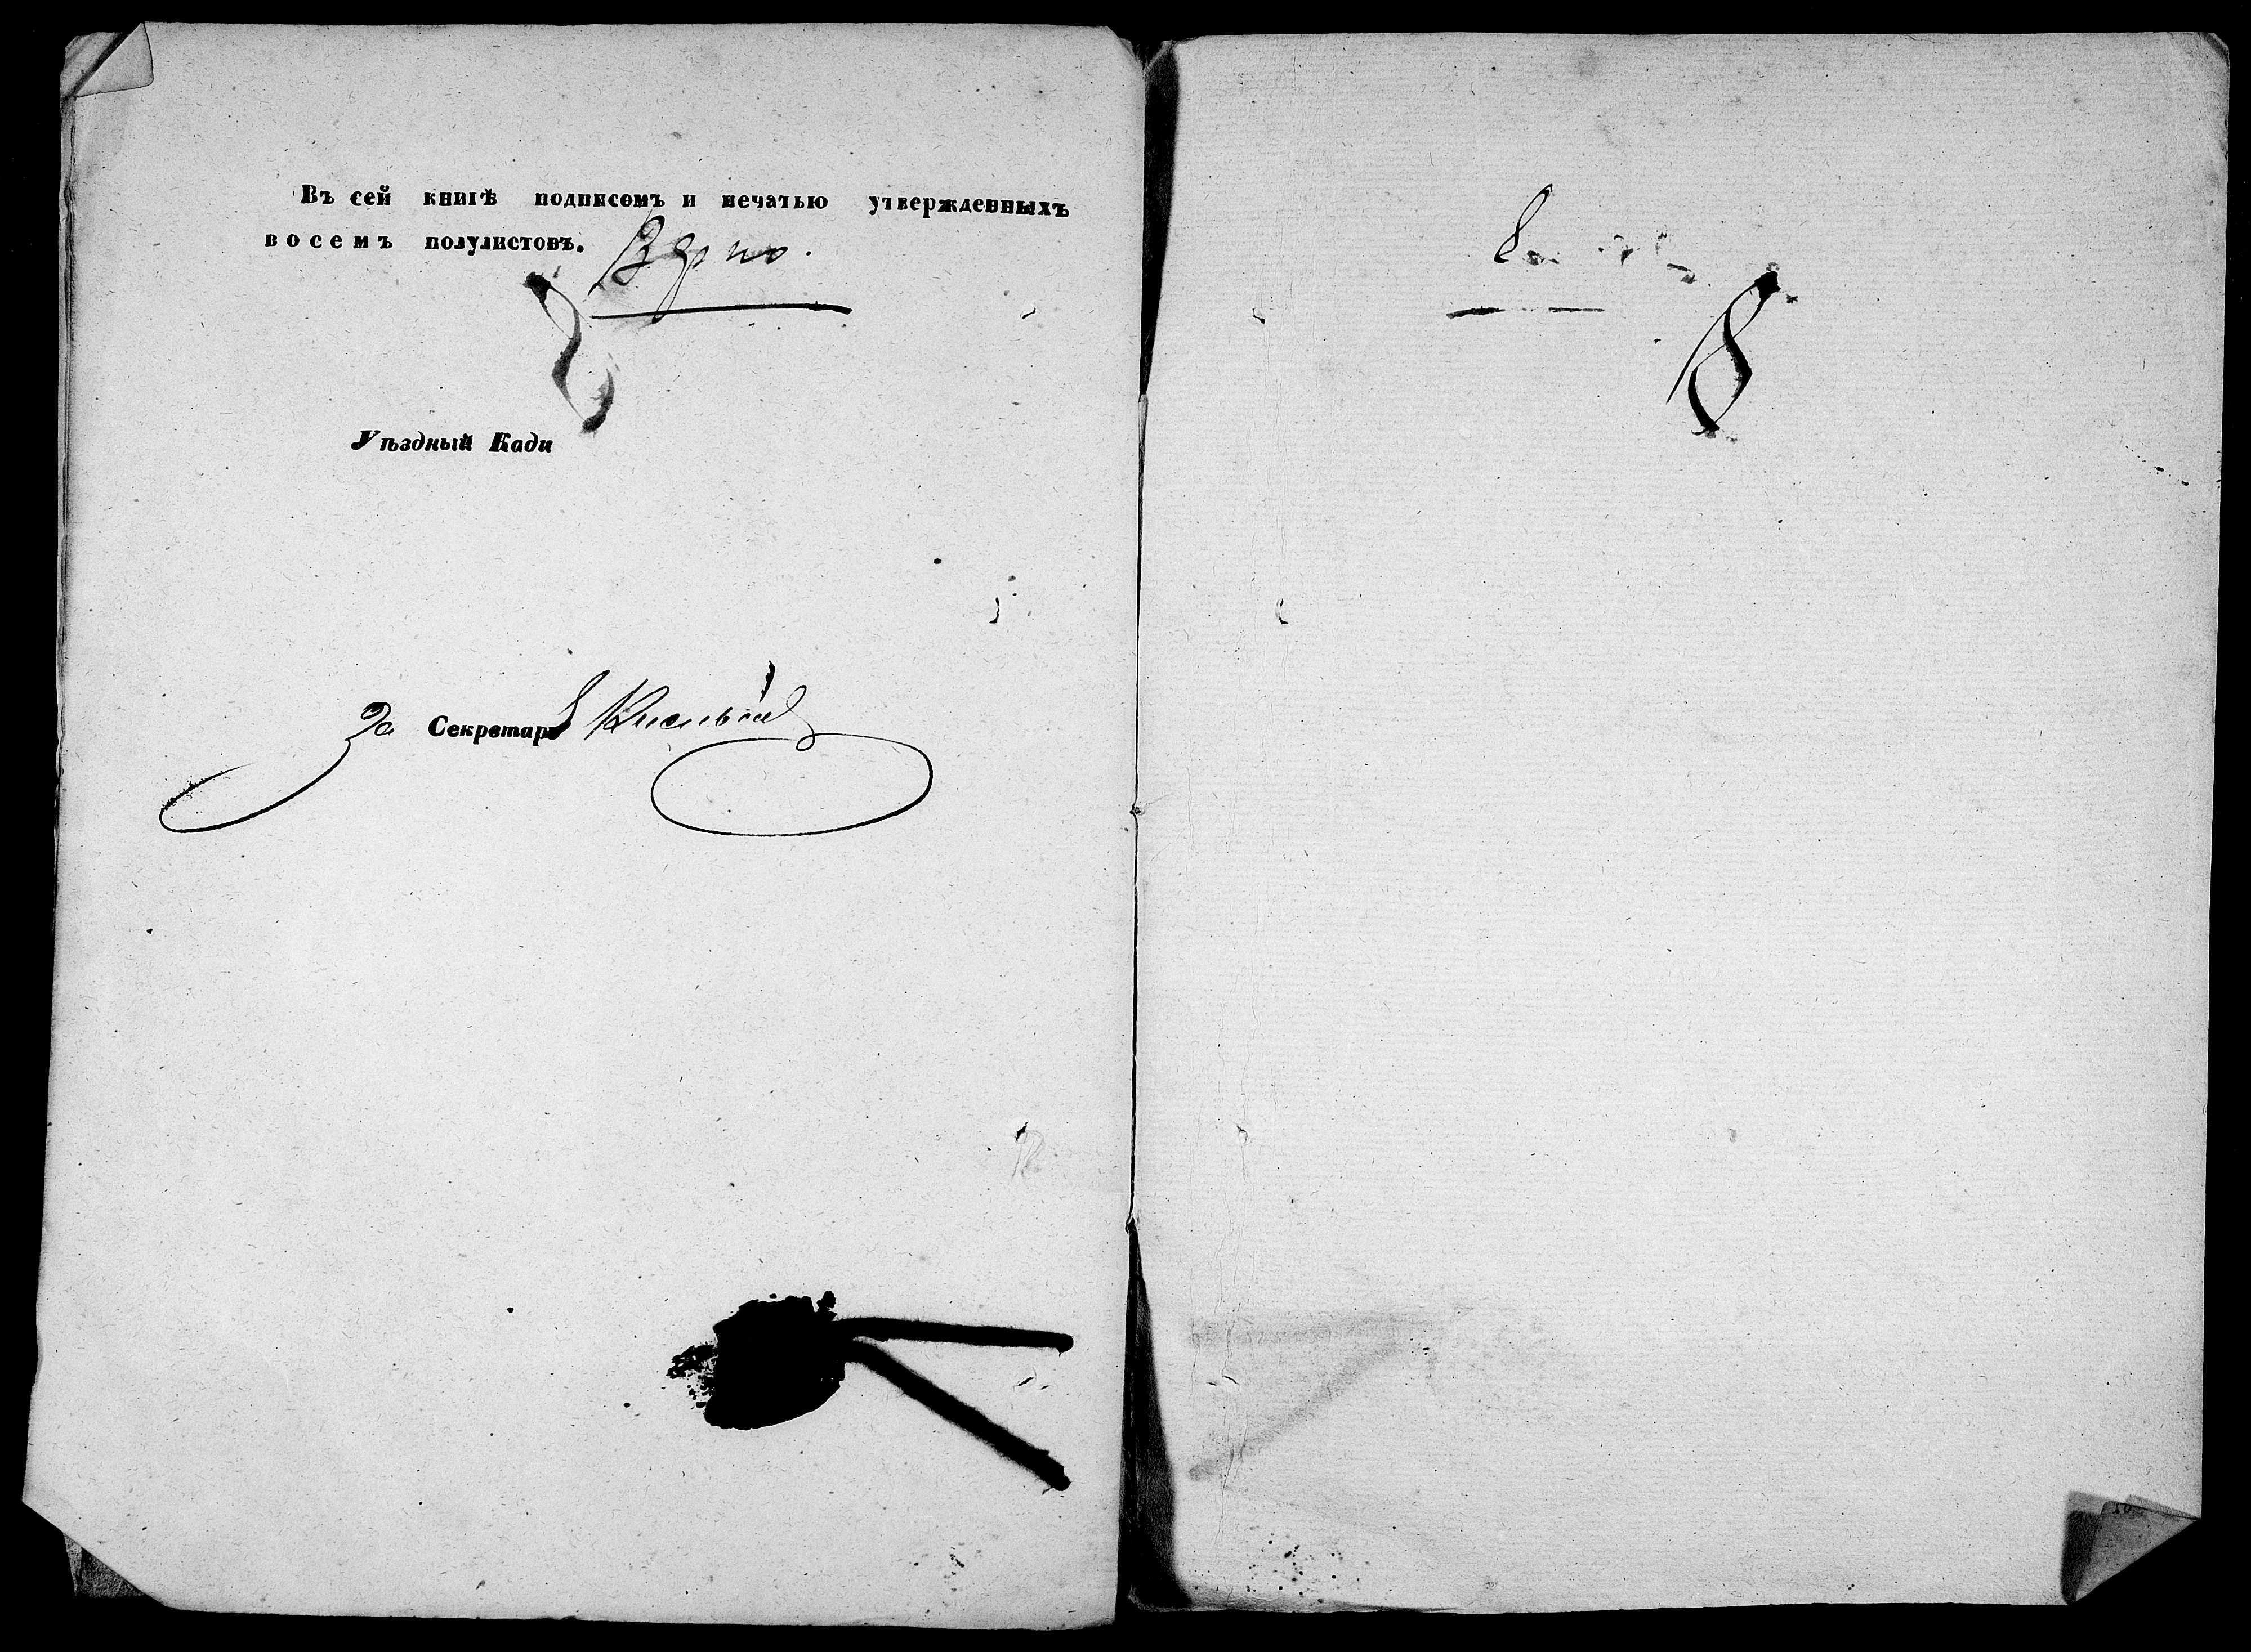 Въ сей книгѣ подписомъ и печатью утвержденныхъ
восемъ полулистовъ. Вѣрно.
Уѣздный Кади
За Секретаря